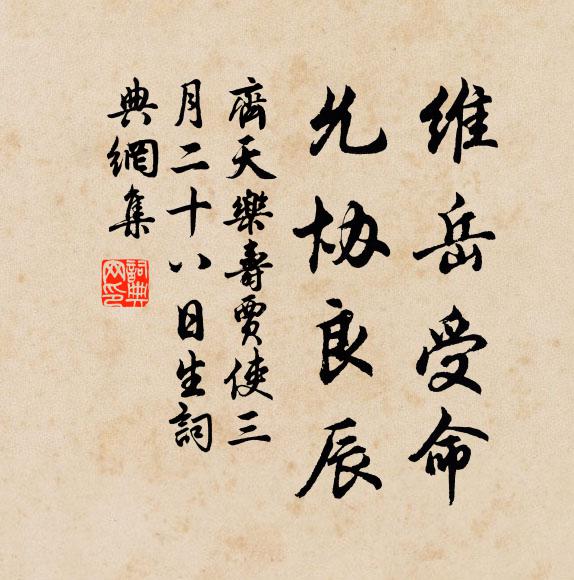 維岳受命
允協良辰
齊天樂壽賈使三
月二十八日生詞
典網集
詞典網印